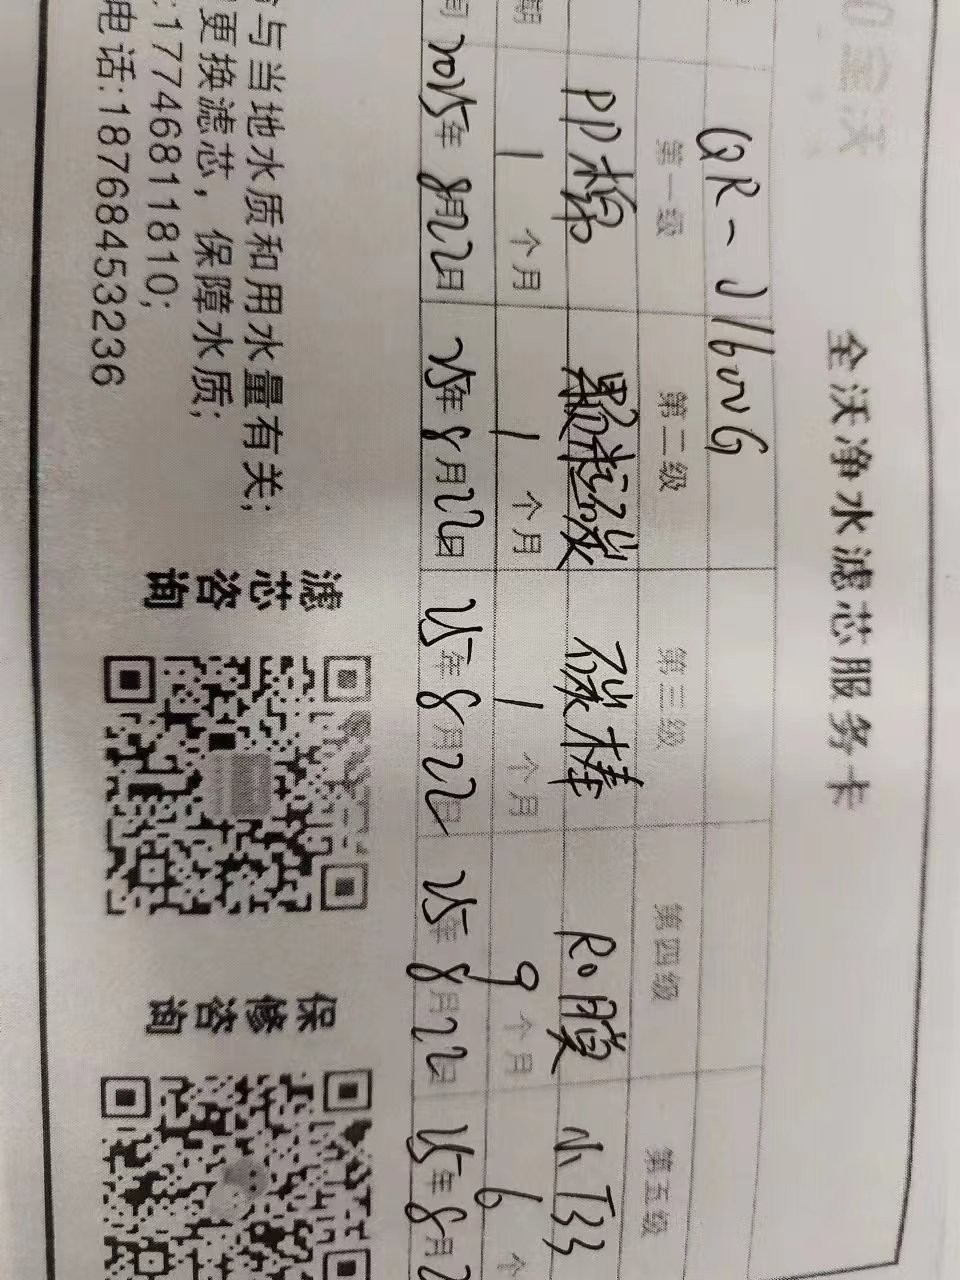 全沃
全沃净水滤芯服务卡
QR-J1602G
第一级 第二级 第三级 第四级 第五级
PP棉 颗粒碳 碳棒 RO膜 小T33
期 1个月 1个月 1个月 9个月 6个
间 2025年8月22日 25年8月22日 25年8月22日 25年8月22日 25年8月2
与当地水质和用水量有关;
更换滤芯，保障水质;
:17746811810;
电话:18768453236
滤芯咨询
保修咨询